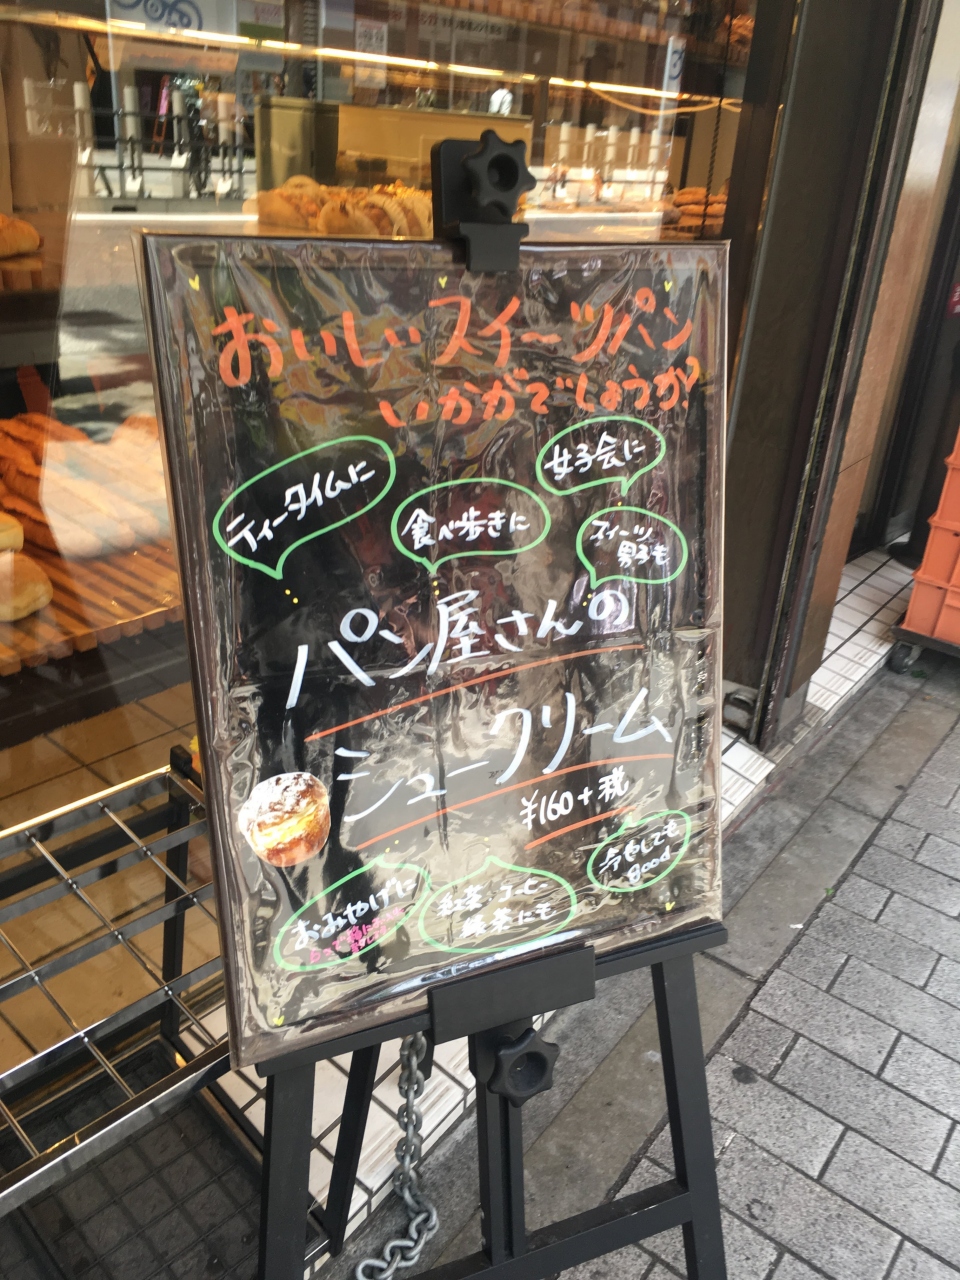 おいしいスイーツパン
いかがでしょうか?
ティータイムに
女子会に
食べ歩きに
スイーツ
男子も
パン屋さんの
シュークリーム
¥160+税
冷やしても
good
おみやげに
紅茶・コーヒー
緑茶にも